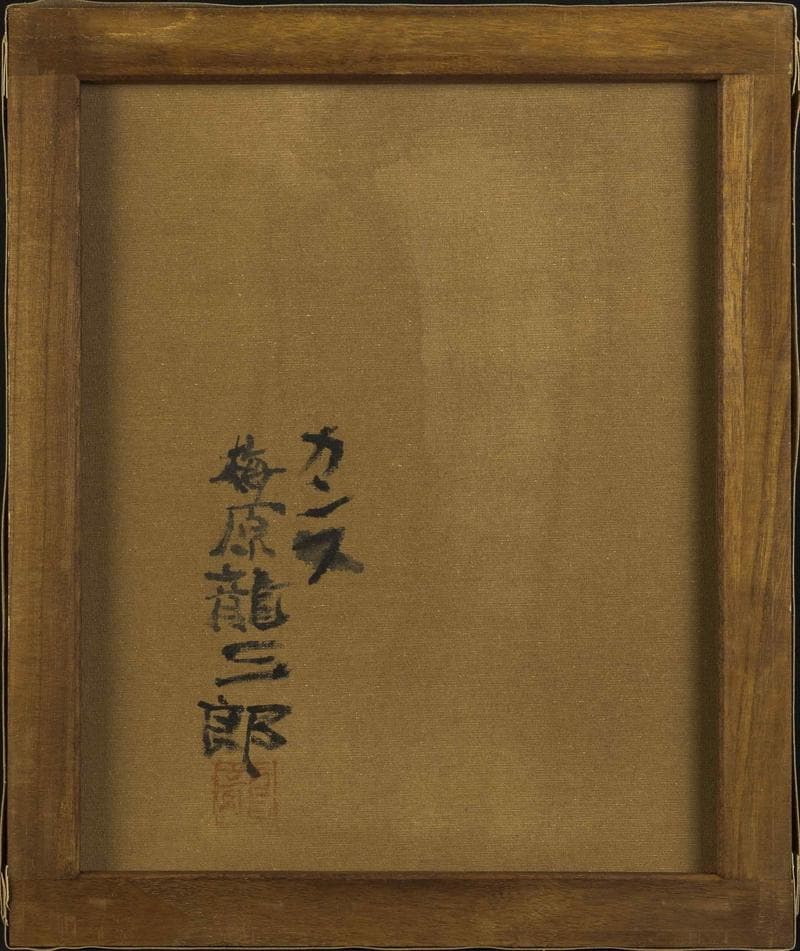 カンヌ
梅原龍三郎